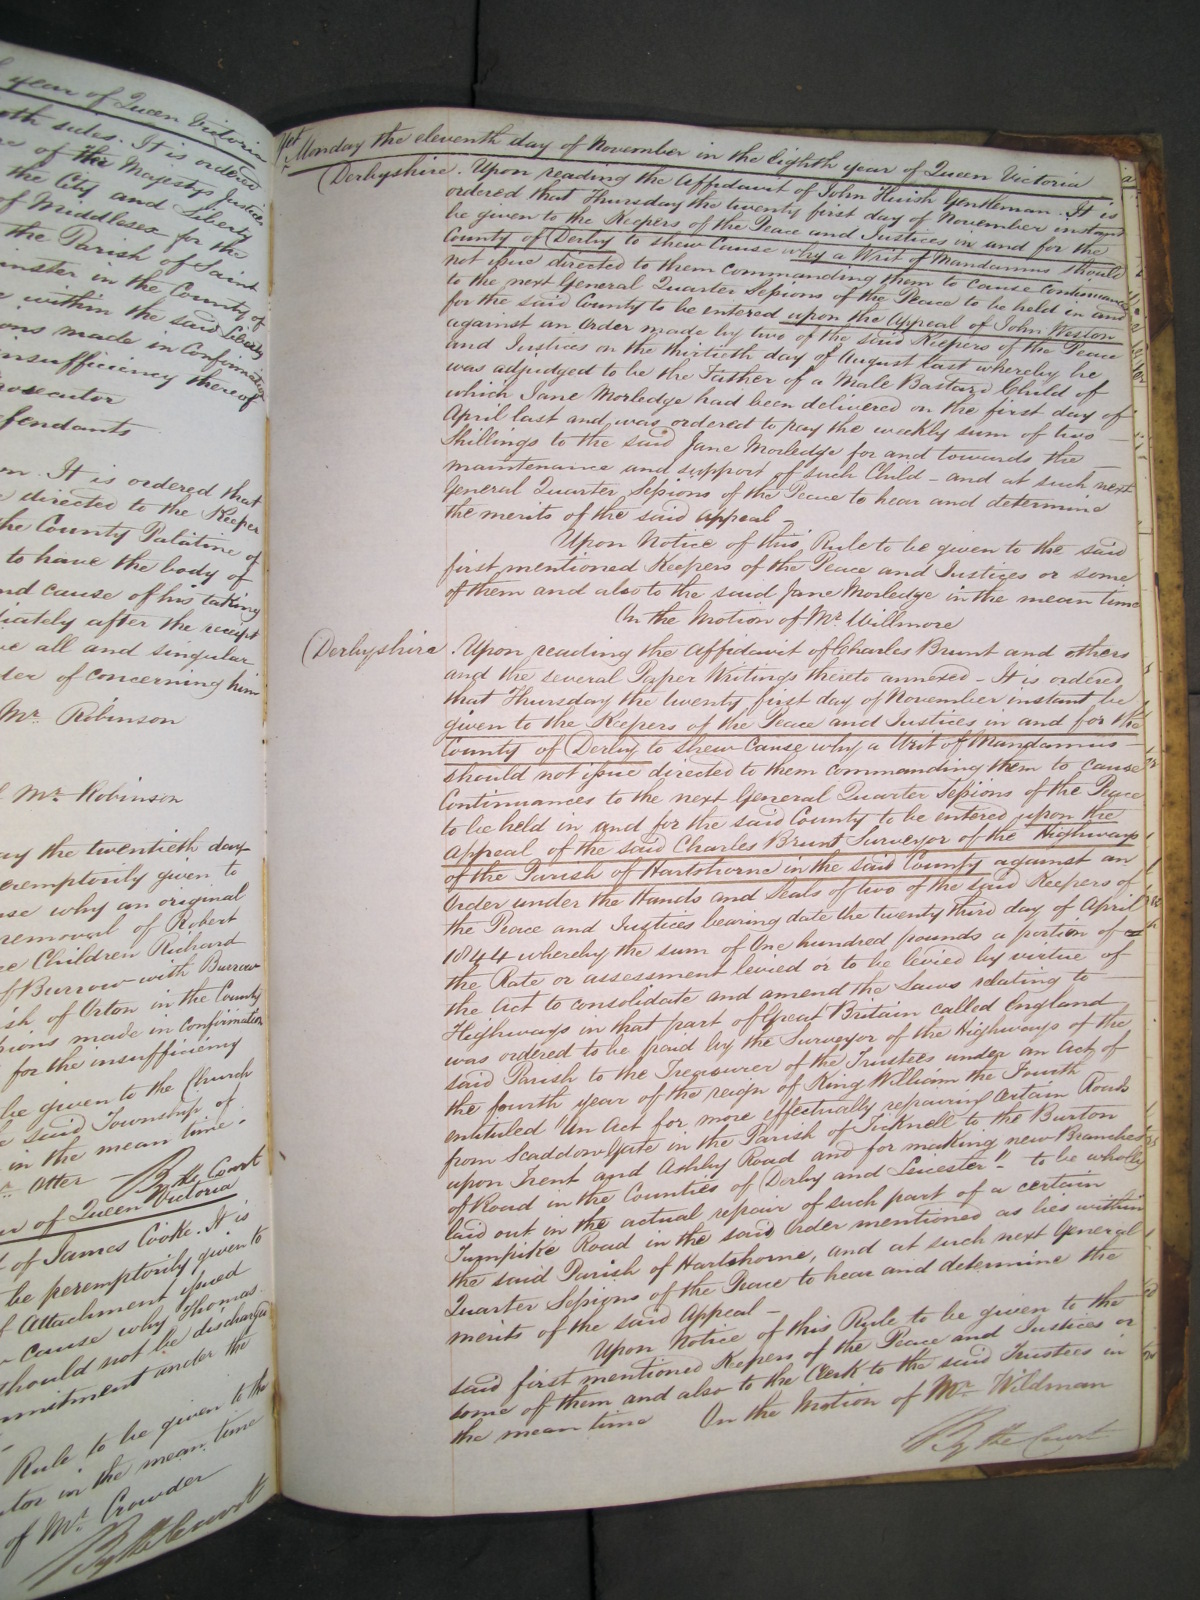 year of Queen Victoria
both sides. It is ordered
of the Majestys Justices
the City and Liberty
of Middlesex for the
the Parish of Saint
minster in the County of
within the said Liberty
ions made in Confirmation
insufficiency thereof
Prosecutor
Defendants
It is ordered that
directed to the Keeper
the County Palatine of
to have the body of
and cause of his taking
diately after the receipt
all and singular
of concerning him
Mr. Robinson
Mr. Robinson
the twentieth day
peremptorily given to
why an original
removal of Robert
Children Richard
Burrow with Burrow
of Orton in the County
Sessions made in Confirmation
for the insufficiency
be given to the Church
said Township of
in the mean time.
Otter By the Court
of Queen Victoria
of James Cooke. It is
be peremptorily given to
Attachment issued
cause why Thomas
should not be discharged
commitment under the
Rule to be given to the
in the mean time
of Mr. Crowder
By the Court
Yet Monday the eleventh day of November in the Eighth year of Queen Victoria
Derbyshire. Upon reading the Affidavit of John Huish Gentleman. It is
ordered that Thursday the twenty first day of November instant
be given to the Keepers of the Peace and Justices in and for the
County of Derby to shew Cause why a Writ of Mandamus should
not issue directed to them commanding them to cause Continuances
to the next General Quarter Sessions of the Peace to be held in and
for the said County to be entered upon the Appeal of John Weston
against an Order made by two of the said Keepers of the Peace
and Justices on the thirtieth day of August last whereby he
was adjudged to be the Father of a Male Bastard Child of
which Jane Morledge had been delivered on the first day of
April last and was ordered to pay the weekly sum of two
Shillings to the said Jane Morledge for and towards the
maintenance and support of such Child - and at such next
General Quarter Sessions of the Peace to hear and determine
the merits of the said Appeal -
Upon Notice of this Rule to be given to the said
first mentioned Keepers of the Peace and Justices or some
of them and also to the said Jane Morledge in the mean time
On the Motion of Mr. Willmore
Derbyshire. Upon reading the Affidavit of Charles Brunt and others
and the several Paper Writings thereto annexed - It is ordered
that Thursday the twenty first day of November instant be
given to the Keepers of the Peace and Justices in and for the
County of Derby to shew Cause why a Writ of Mandamus
should not issue directed to them commanding them to cause
Continuances to the next General Quarter Sessions of the Peace
to be held in and for the said County to be entered upon the
Appeal of the said Charles Brunt Surveyor of the Highways
of the Parish of Hartshorne in the said County against an
Order under the Hands and Seals of two of the said Keepers of
the Peace and Justices bearing date the twenty third day of April
1844 whereby the sum of One hundred pounds a portion of
the Rate or assessment levied or to be levied by virtue of
the Act to consolidate and amend the Laws relating to
Highways in that part of Great Britain called England
was ordered to be paid by the Surveyor of the Highways of the
said Parish to the Treasurer of the Trustees under an Act of
the fourth year of the reign of King William the Fourth
entituled "An Act for more effectually repairing Certain Roads
from Scaddowgate in the Parish of Ticknell to the Burton
upon Trent and Ashby Road and for making new Branches
of Road in the Counties of Derby and Leicester" - to be wholly
laid out in the actual repair of such part of a certain
Turnpike Road in the said Order mentioned as lies within
the said Parish of Hartshorne, and at such next General
Quarter Sessions of the Peace to hear and determine the
merits of the said Appeal -
Upon Notice of this Rule to be given to the
said first mentioned Keepers of the Peace and Justices or
some of them and also to the Clerk to the said Trustees in
the mean time On the Motion of Mr. Wildman
By the Court